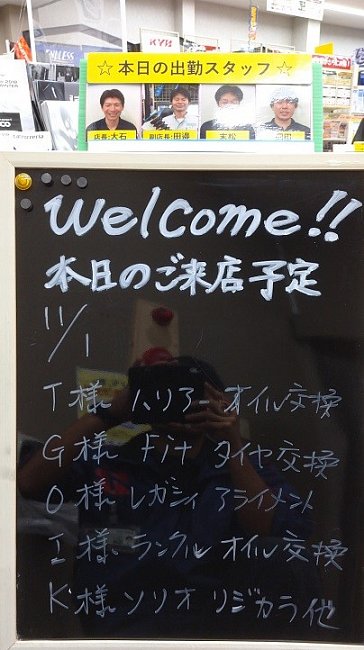 ENDLESS
KYB
☆ 本日の出勤スタッフ ☆
店長:大石
副店長:田邉
末松
Welcome!!
本日のご来店予定
11/1
T様 ハリアー オイル交換
G様 Fit タイヤ交換
O様 レガシィ アライメント
I様 ランクル オイル交換
K様 ソリオ リジカラ他